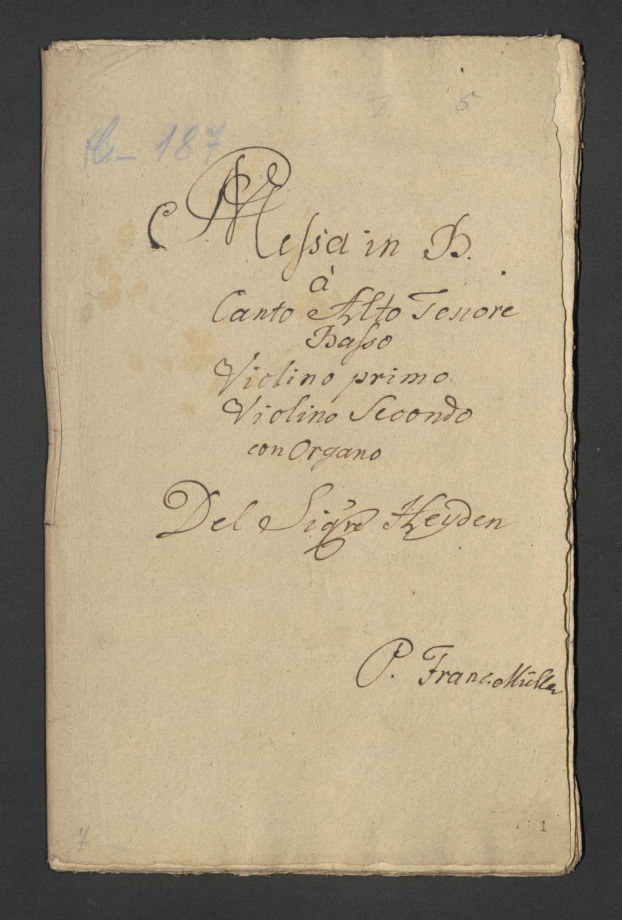 5
A-187
Messa in B.
à
Canto Alto Tenore
Basso
Violino primo
Violino Secondo
con Organo
Del Sigre Heyden
P. Franc. Müller
7
1